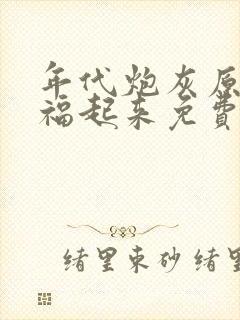 年代炮灰原
福起来免費
绪里束砂绪里